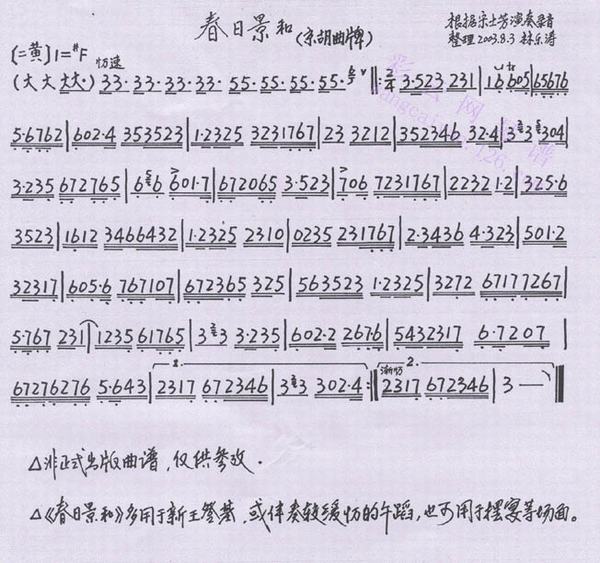 春日景和(京胡曲牌)
根据宋士芳演奏录音
整理 2003.8.3 林乐涛
(二黄) 1=#F 怡速
(大 大 大大·) 33· 33· 33· 33· 55· 55· 55· 55· 2/4 3·523 231 | 1 6 605 | 65676
5·6762 | 602·4 353523 | 1·2325 3231767 | 23 3212 | 352346 32·4 | 3 3 304 |
3·235 672765 | 6 6 601·7 | 672065 3·523 | 706 7231767 | 2232 1·2 | 325·6
3523 | 1612 3466432 | 1·2325 2310 | 0235 231767 | 2·3436 4·323 | 501·2
32317 | 605·6 767107 | 672365 325 | 563523 1·2325 | 3272 67177267 |
5·767 231 | 1235 61765 | 3 3 3·235 | 602·2 2676 | 5432317 6·7207 |
67276276 5·643 | 1. 2317 672346 | 3 3 302·4 :‖ 渐慢 2. 2317 672346 | 3 — ) ‖
△非正式出版曲谱,仅供参改.
△《春日景和》多用于新王登基,或伴奏较缓怡的午蹈,也可用于摆宴等场面。